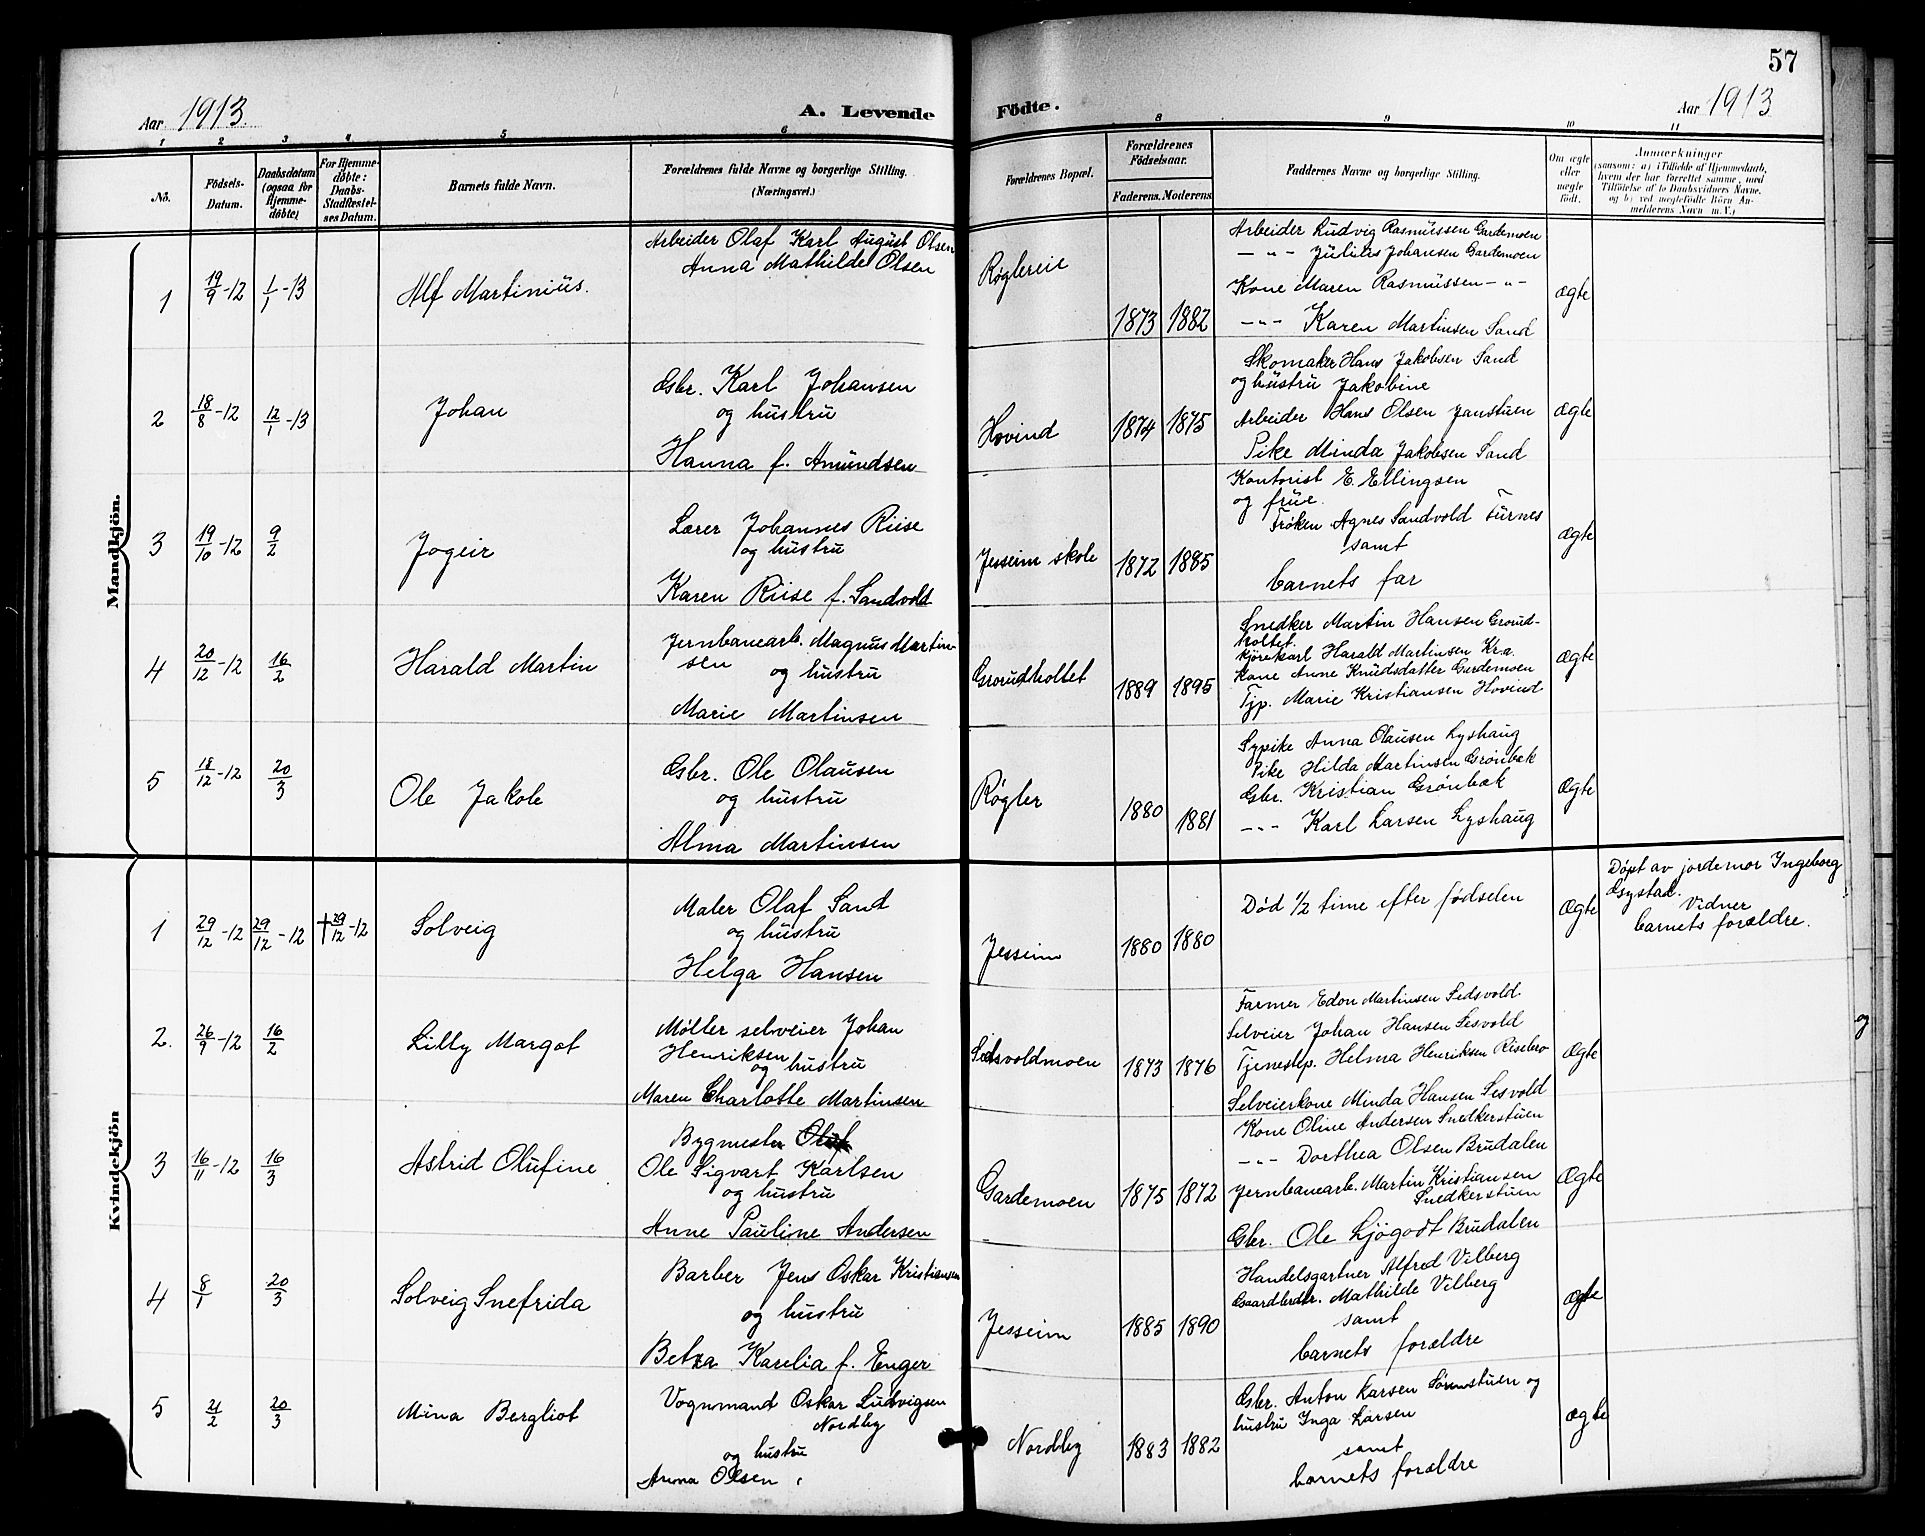 57
Aar 1913.
A. Levende
Födte.
Aar 1913
1 2 3 4 5 6
8 9 10 11
No.
Födsels-
Datum.
Daabsdatum
(ogsaa for
Hjemme-
döbte)
For Hjemme-
døbte:
Daabs-
Stadfæstel-
ses Datum.
Barnets fulde Navn.
Forældrenes fulde Navne og borgerlige Stilling.
(Næringsvei.)
Forældrenes Bopæl.
Forældrenes
Födselsaar.
Faderens. Moderens.
Faddernes Navne og borgerlige Stilling.
Om ægte
eller
uægte
födt.
Anmærkninger
(saasom: a) i Tilfælde af Hjemmedaab,
hvem der har forrettet samme, med
Tilföielse af to Daabsvidners Navne,
og b) ved uægtefödte Börn An-
melderens Navn m. V.)
Mandkjön.
1
19/9-12
1/1-13
Alf Martinius.
Arbeider Olaf Karl August Olsen
Anna Mathilde Olsen
Røglereie
1873 1882
Arbeider Ludvig Rasmussen Gardemoen
-"- Julius Johansen Gardemoen
Kone Maren Rasmussen -"-
-"- Karen Martinsen Sand
Ægte
2
18/8-12
12/1-13
Johan
Gbr. Karl Johansen
og hustru
Hanna f. Amundsen
Hovind
1874 1875
Skomaker Hans Jakobsen Sand
og hustru Jakobine
Arbeider Hans Olsen Janstuen
Pike Minda Jakobsen Sand
Ægte
3
19/10-12
9/2
Jogeir
Lærer Johannes Riise
og hustru
Karen Riise f. Sandvold
Jesseim skole
1872 1885
Kontorist E. Ellingsen
og frue.
Frøken Agnes Sandvold Furnes
samt
barnets far
Ægte
4
20/12-12
16/2
Harald Martin
Jernbanearb. Magnus Martin-
sen
og hustru
Marie Martinsen
Grorudholtet
1889 1895
Snedker Martin Hansen Grorud-
holtet.
Kjørekarl Harald Martinsen Kra.
Kone Anne Knudsdatter Gardemoen
Tjp. Marie Kristiansen Hovind
Ægte
5
18/12-12
20/3
Ole Jakob
Gbr. Ole Olausen
og hustru
Alma Martinsen
Røgler
1880 1881
Sypike Anna Olausen Lyshaug
Pike Hilda Martinsen Grønbæk
Gbr. Kristian Grønbæk
-"- Karl Larsen Lyshaug
Ægte
Kvindekjön
1
29/12-12
29/12-12
†29/12-12
Solveig
Maler Olaf Sand
og hustru
Helga Hansen
Jesseim
1880 1880
Død 1/2 time efter fødselen
Ægte
Døpt av jordemor Ingeborg
Gystad.
Vidner
barnets forældre.
2.
26/9-12
16/2
Lilly Margot
Møller selveier Johan
Henriksen
og hustru
Maren Charlotte Martinsen
Sedsvoldmoen
1873 1876
Farmer Edon Martinsen Sedsvold.
Selveier Johan Hansen Sesvold
Tjenestep. Helma Henriksen Risebro
Selveierkone Minda Hansen Sesvold
Ægte
3
16/11-12
16/3
Astrid Olufine
Bygmester Oluf
Ole Sigvart Karlsen
og hustru
Anne Pauline Andersen
Gardemoen
1875 1872
Kone Oline Andersen Snedkerstuen
-"- Dorthea Olsen Brudalen
Jernbanearb. Martin Kristiansen
Snedkerstuen
Gbr. Ole Ljøgodt Brudalen
Ægte
4
8/1
20/3
Solveig Snefrida
Barber Jens Oskar Kristiansen
og hustru
Betza Karelia f. Enger
Jesseim
1885 1890
Handelsgartner Alfred Vilberg
Gaardbrdtr. Mathilde Vilberg
samt
barnets forældre
Ægte
5
21/2
20/3
Mina Bergliot
Vognmand Oskar Ludvigsen
Nordby
og hustru
Anna Olsen
Nordby
1883 1882
Gbr. Anton Larsen Sørenstuen og
hustru Inga Larsen
samt
barnets forældre
Ægte